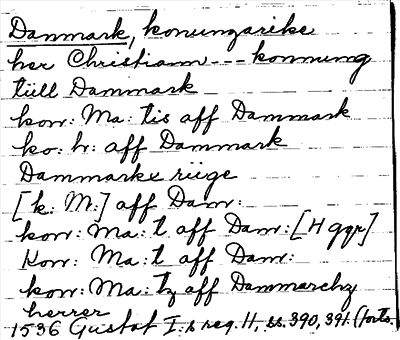 Danmark, konungarike
her Christiann --- konnung
tüll Dammark
kon: Ma: tis aff Dammark
ko: h: aff Dammark
Dammarkx riige
[k: M:] aff Dam:
kon: Ma: t aff Dam: [4 ggr]
Kon: Ma: t aff Dam:
kon: Ma: tz aff Dammarchz
herrer
1536 Gustaf I:s reg. 11, ss. 390, 391. (forts.